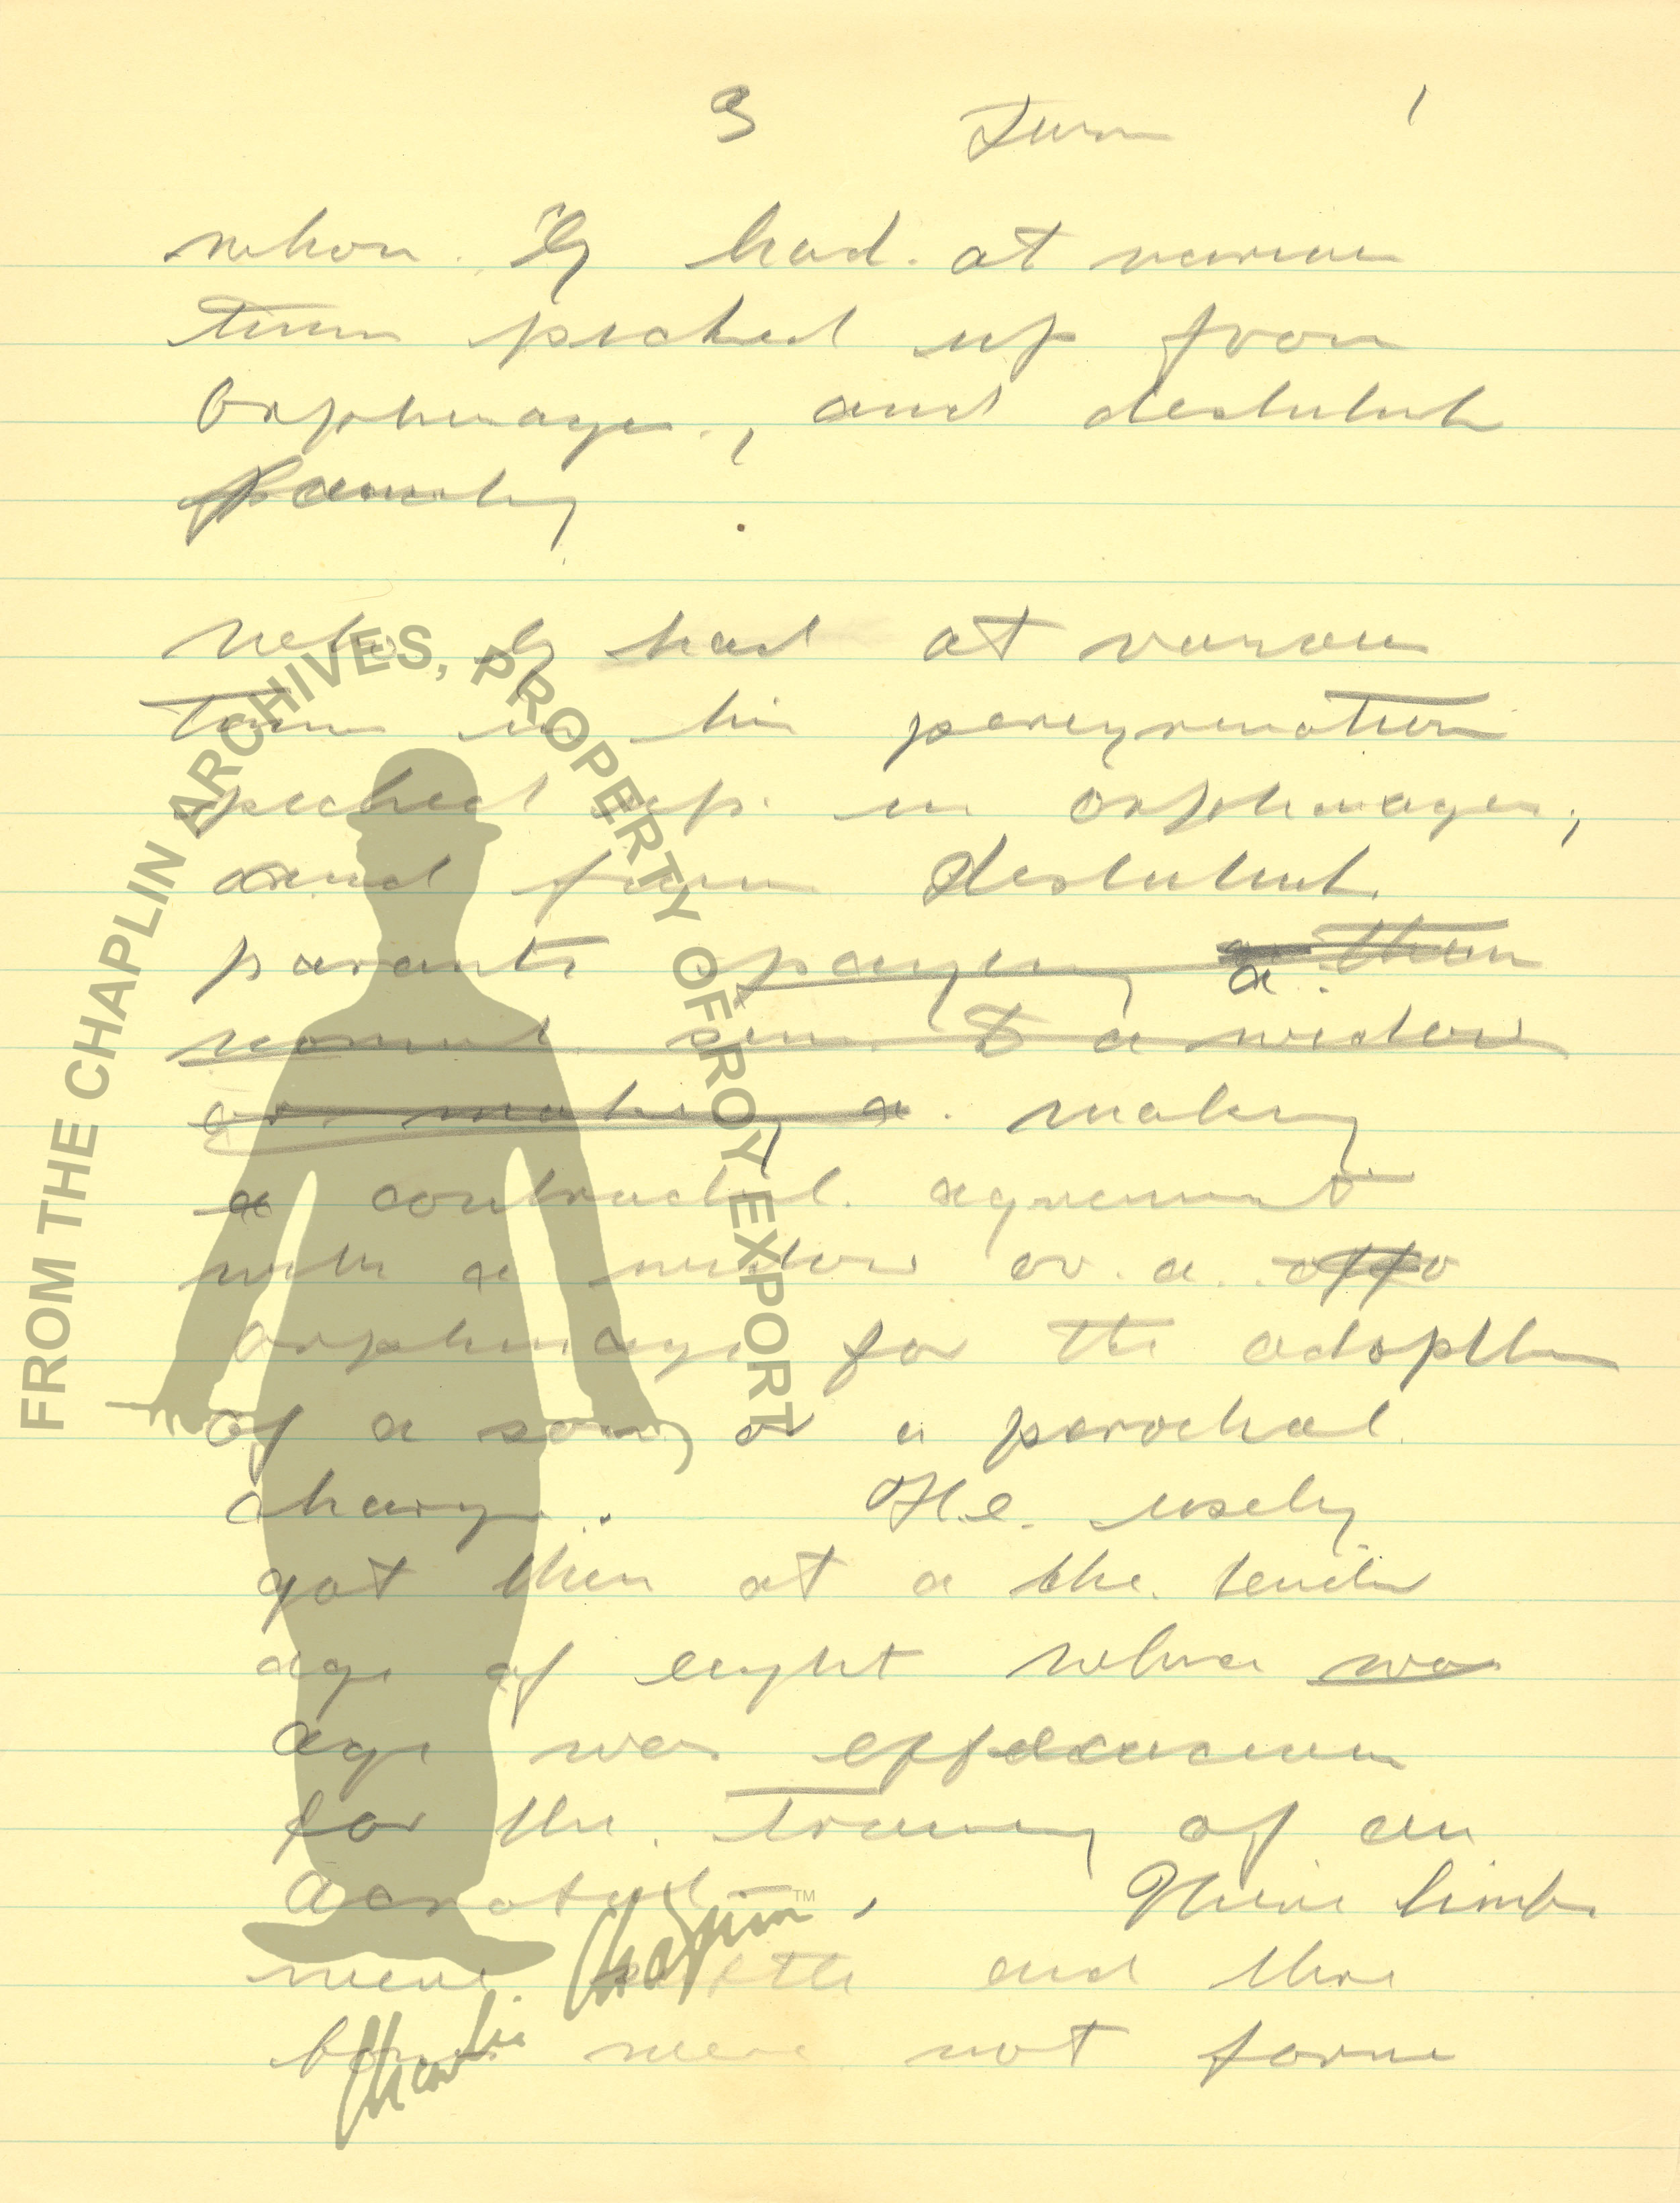 3 Turn 1
whom Zy had at various
times picked up from
Orphanages, and destitute
family
whom Zy had at various
times in his peregrenation
picked up in orphanages,
and from destitute
parents paying a them
sum to a widow
or making a making
a contracted agreement
with a widow or a
orphanage for the adoption
of a son, or a parochal
charge. He usely
got them at a the tender
age of eight whose wa
age was
for the training of an
acrobat. Their limbs
were and there
bones were not forme
FROM THE CHAPLIN ARCHIVES, PROPERTY OF ROY EXPORT
Charlie Chaplin TM